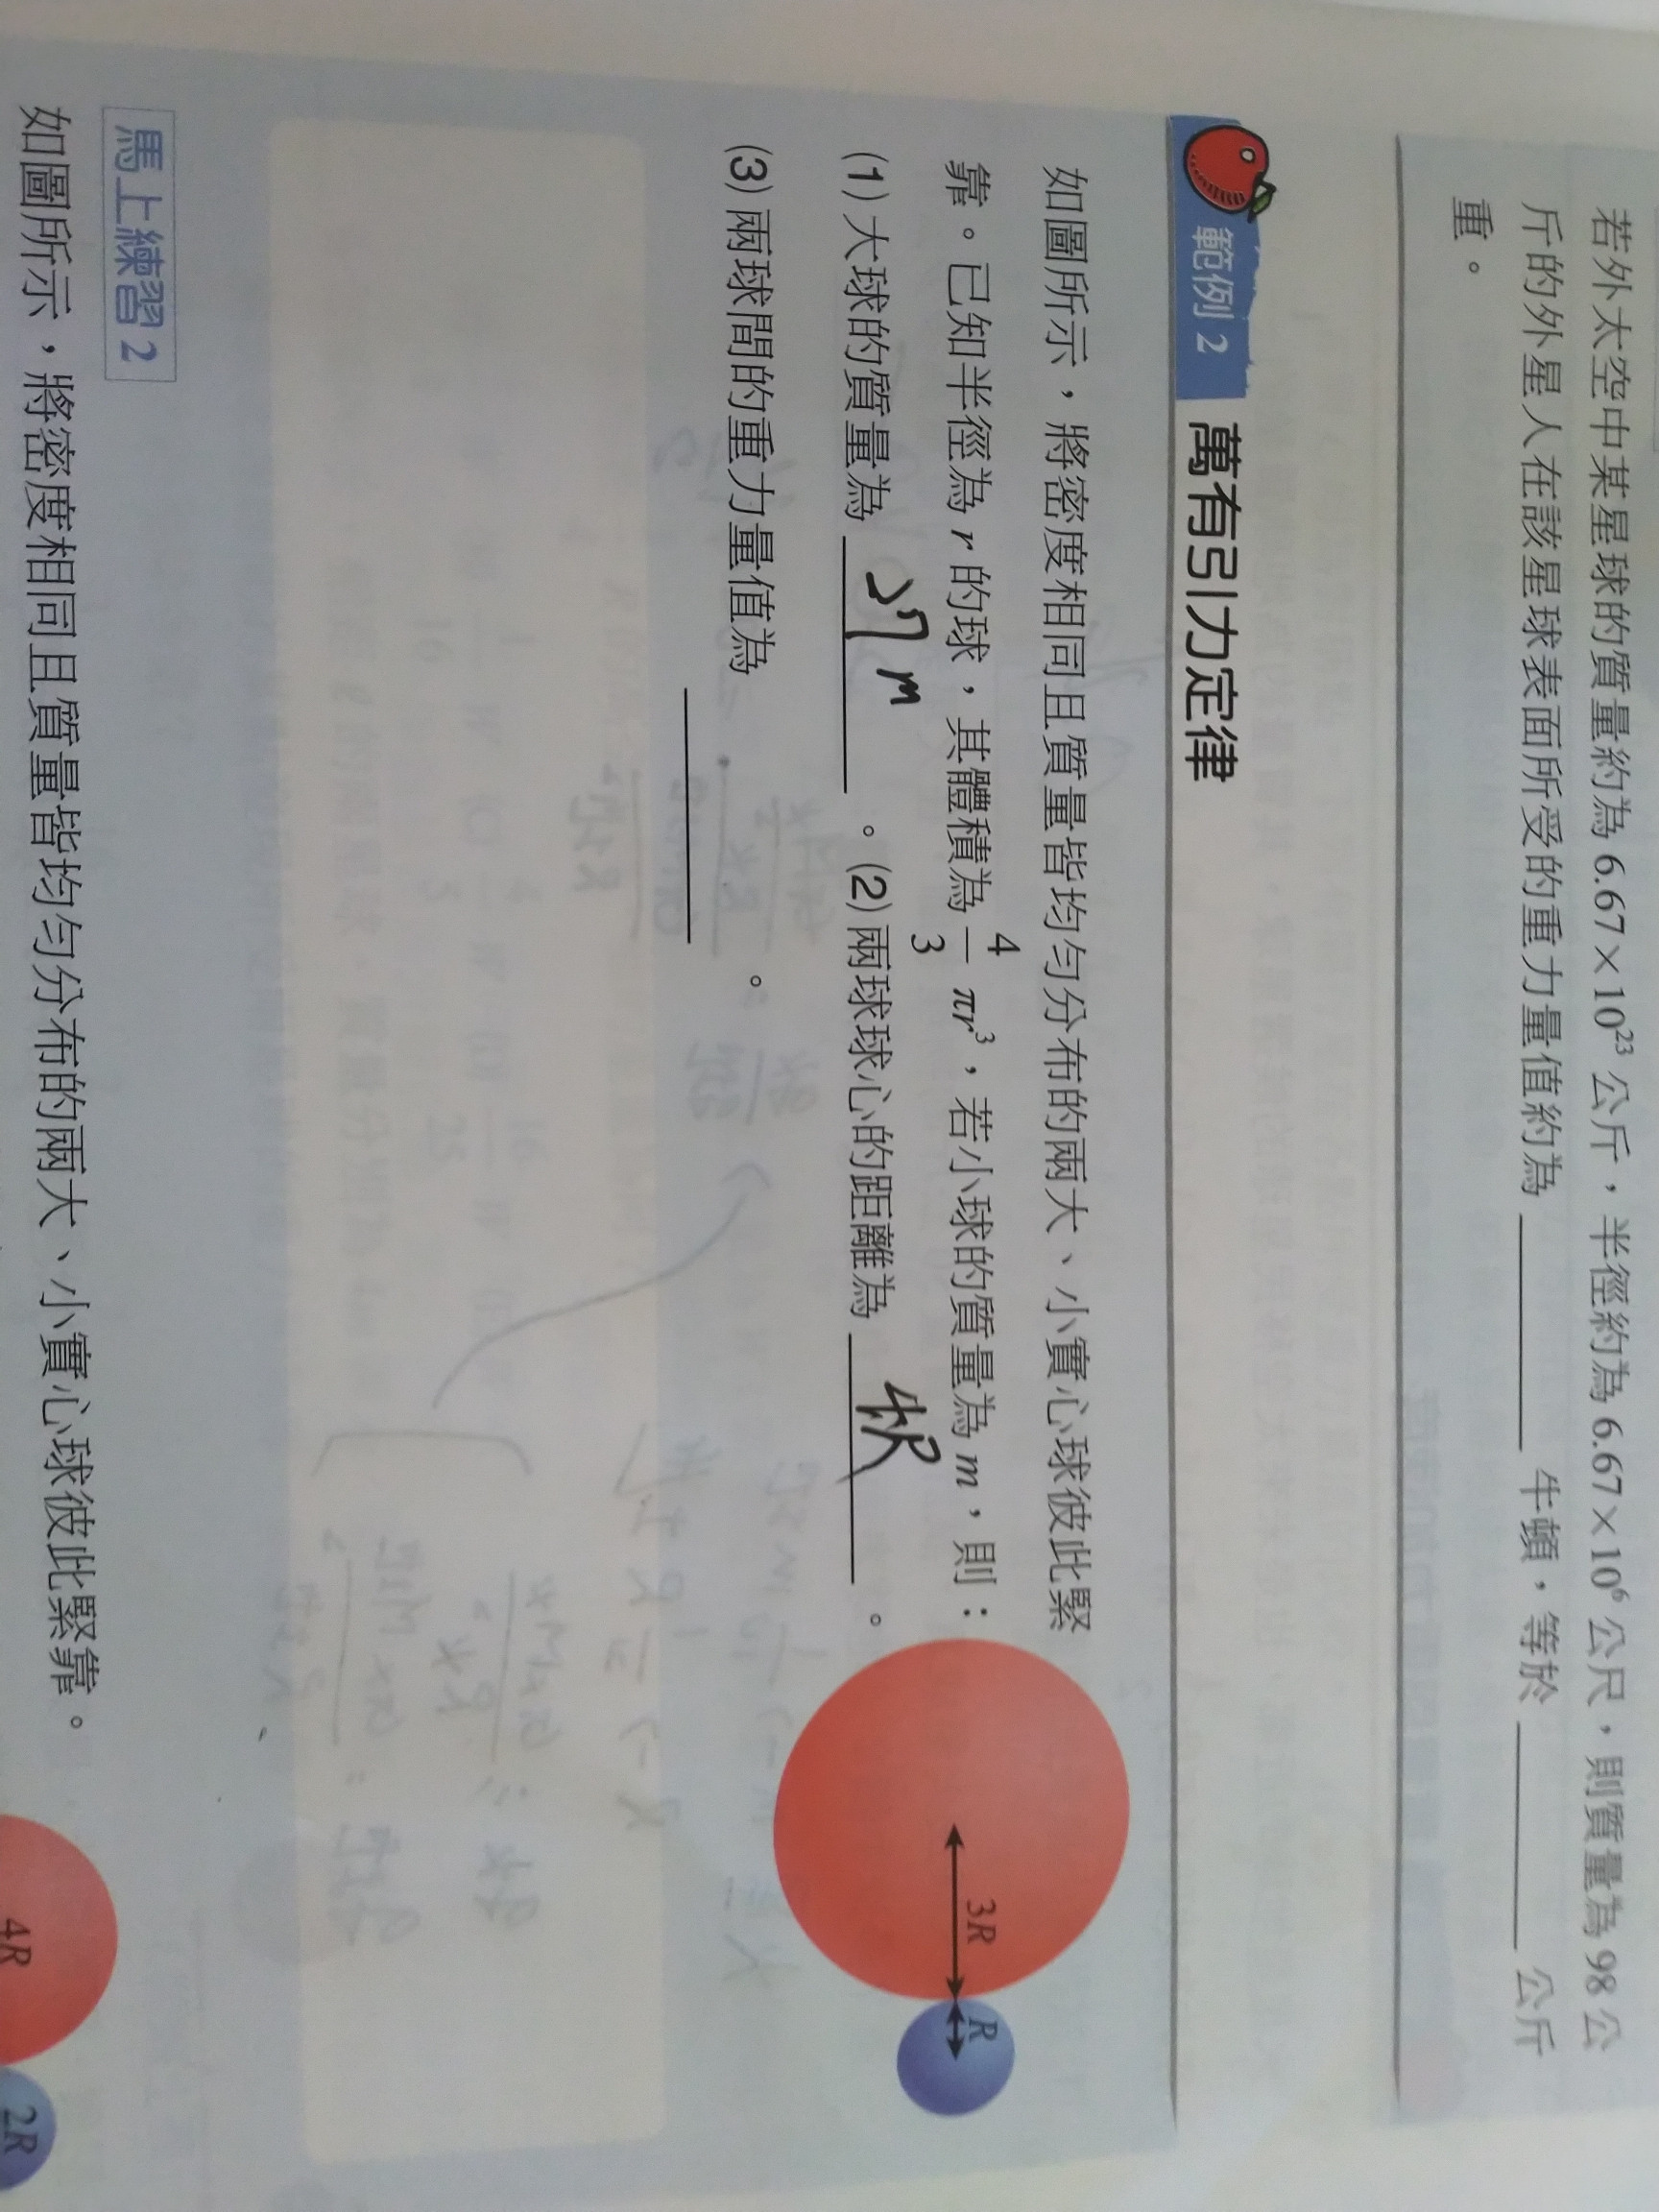 若外太空中某星球的質量約為 6.67×10²³ 公斤，半徑約為 6.67×10⁶ 公尺，則質量為 98 公
斤的外星人在該星球表面所受的重力量值約為 ________ 牛頓，等於 ________ 公斤
重。
範例 2 萬有引力定律
如圖所示，將密度相同且質量皆均勻分布的兩大、小實心球彼此緊
靠。已知半徑為 r 的球，其體積為 4/3 πr³，若小球的質量為 m，則：
(1) 大球的質量為 27m 。(2) 兩球球心的距離為 4R 。
(3) 兩球間的重力量值為 ________ 。
3R
R
馬上練習 2
如圖所示，將密度相同且質量皆均勻分布的兩大、小實心球彼此緊靠。
4R
2R